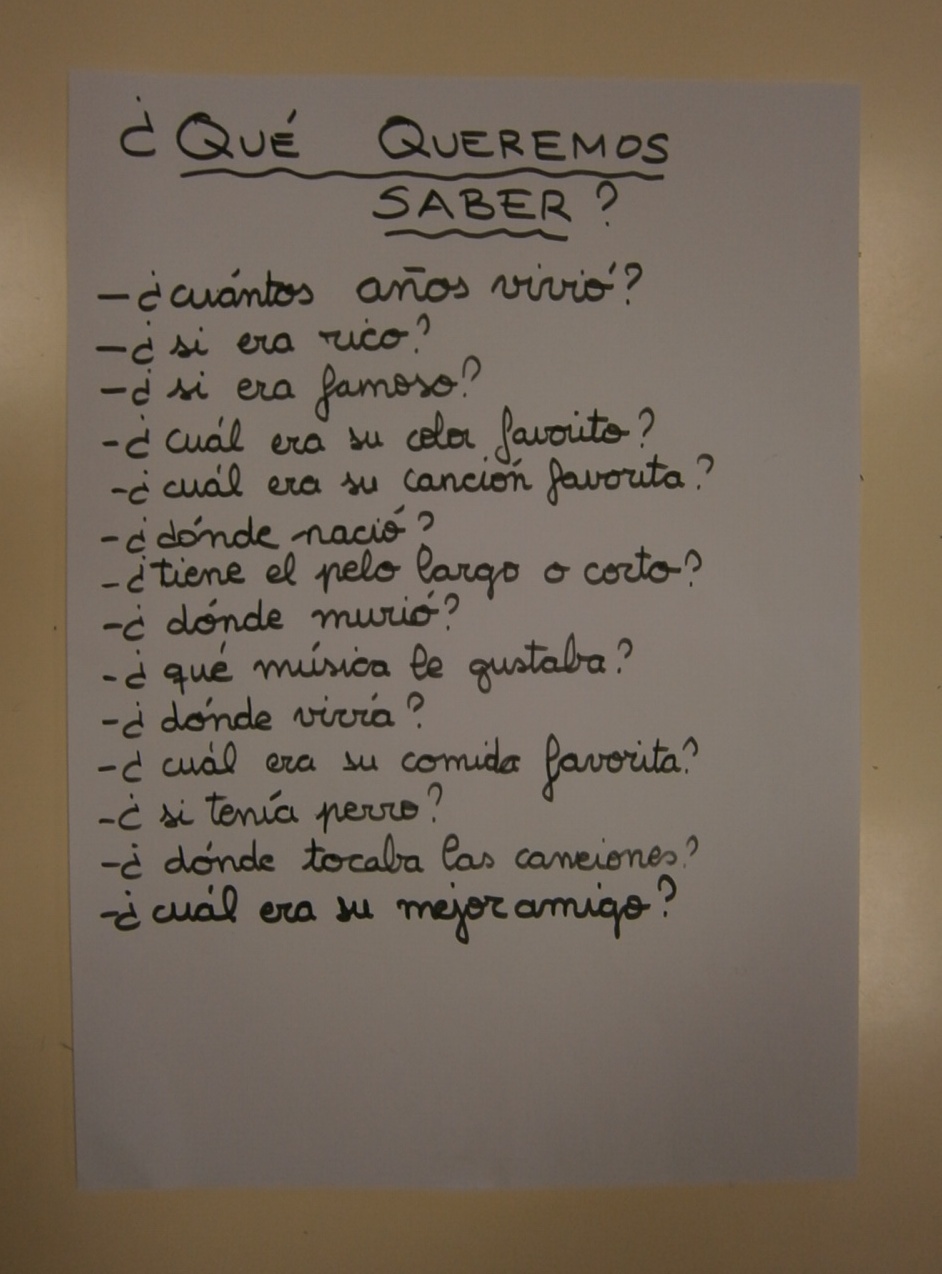 ¿QUÉ QUEREMOS
SABER?
-¿cuántos años vivió?
-¿si era rico?
-¿si era famoso?
-¿cuál era su color favorito?
-¿cuál era su canción favorita?
-¿dónde nació?
-¿tiene el pelo largo o corto?
-¿dónde murió?
-¿qué música le gustaba?
-¿dónde vivía?
-¿cuál era su comida favorita?
-¿si tenía perro?
-¿dónde tocaba las canciones?
-¿cuál era su mejor amigo?